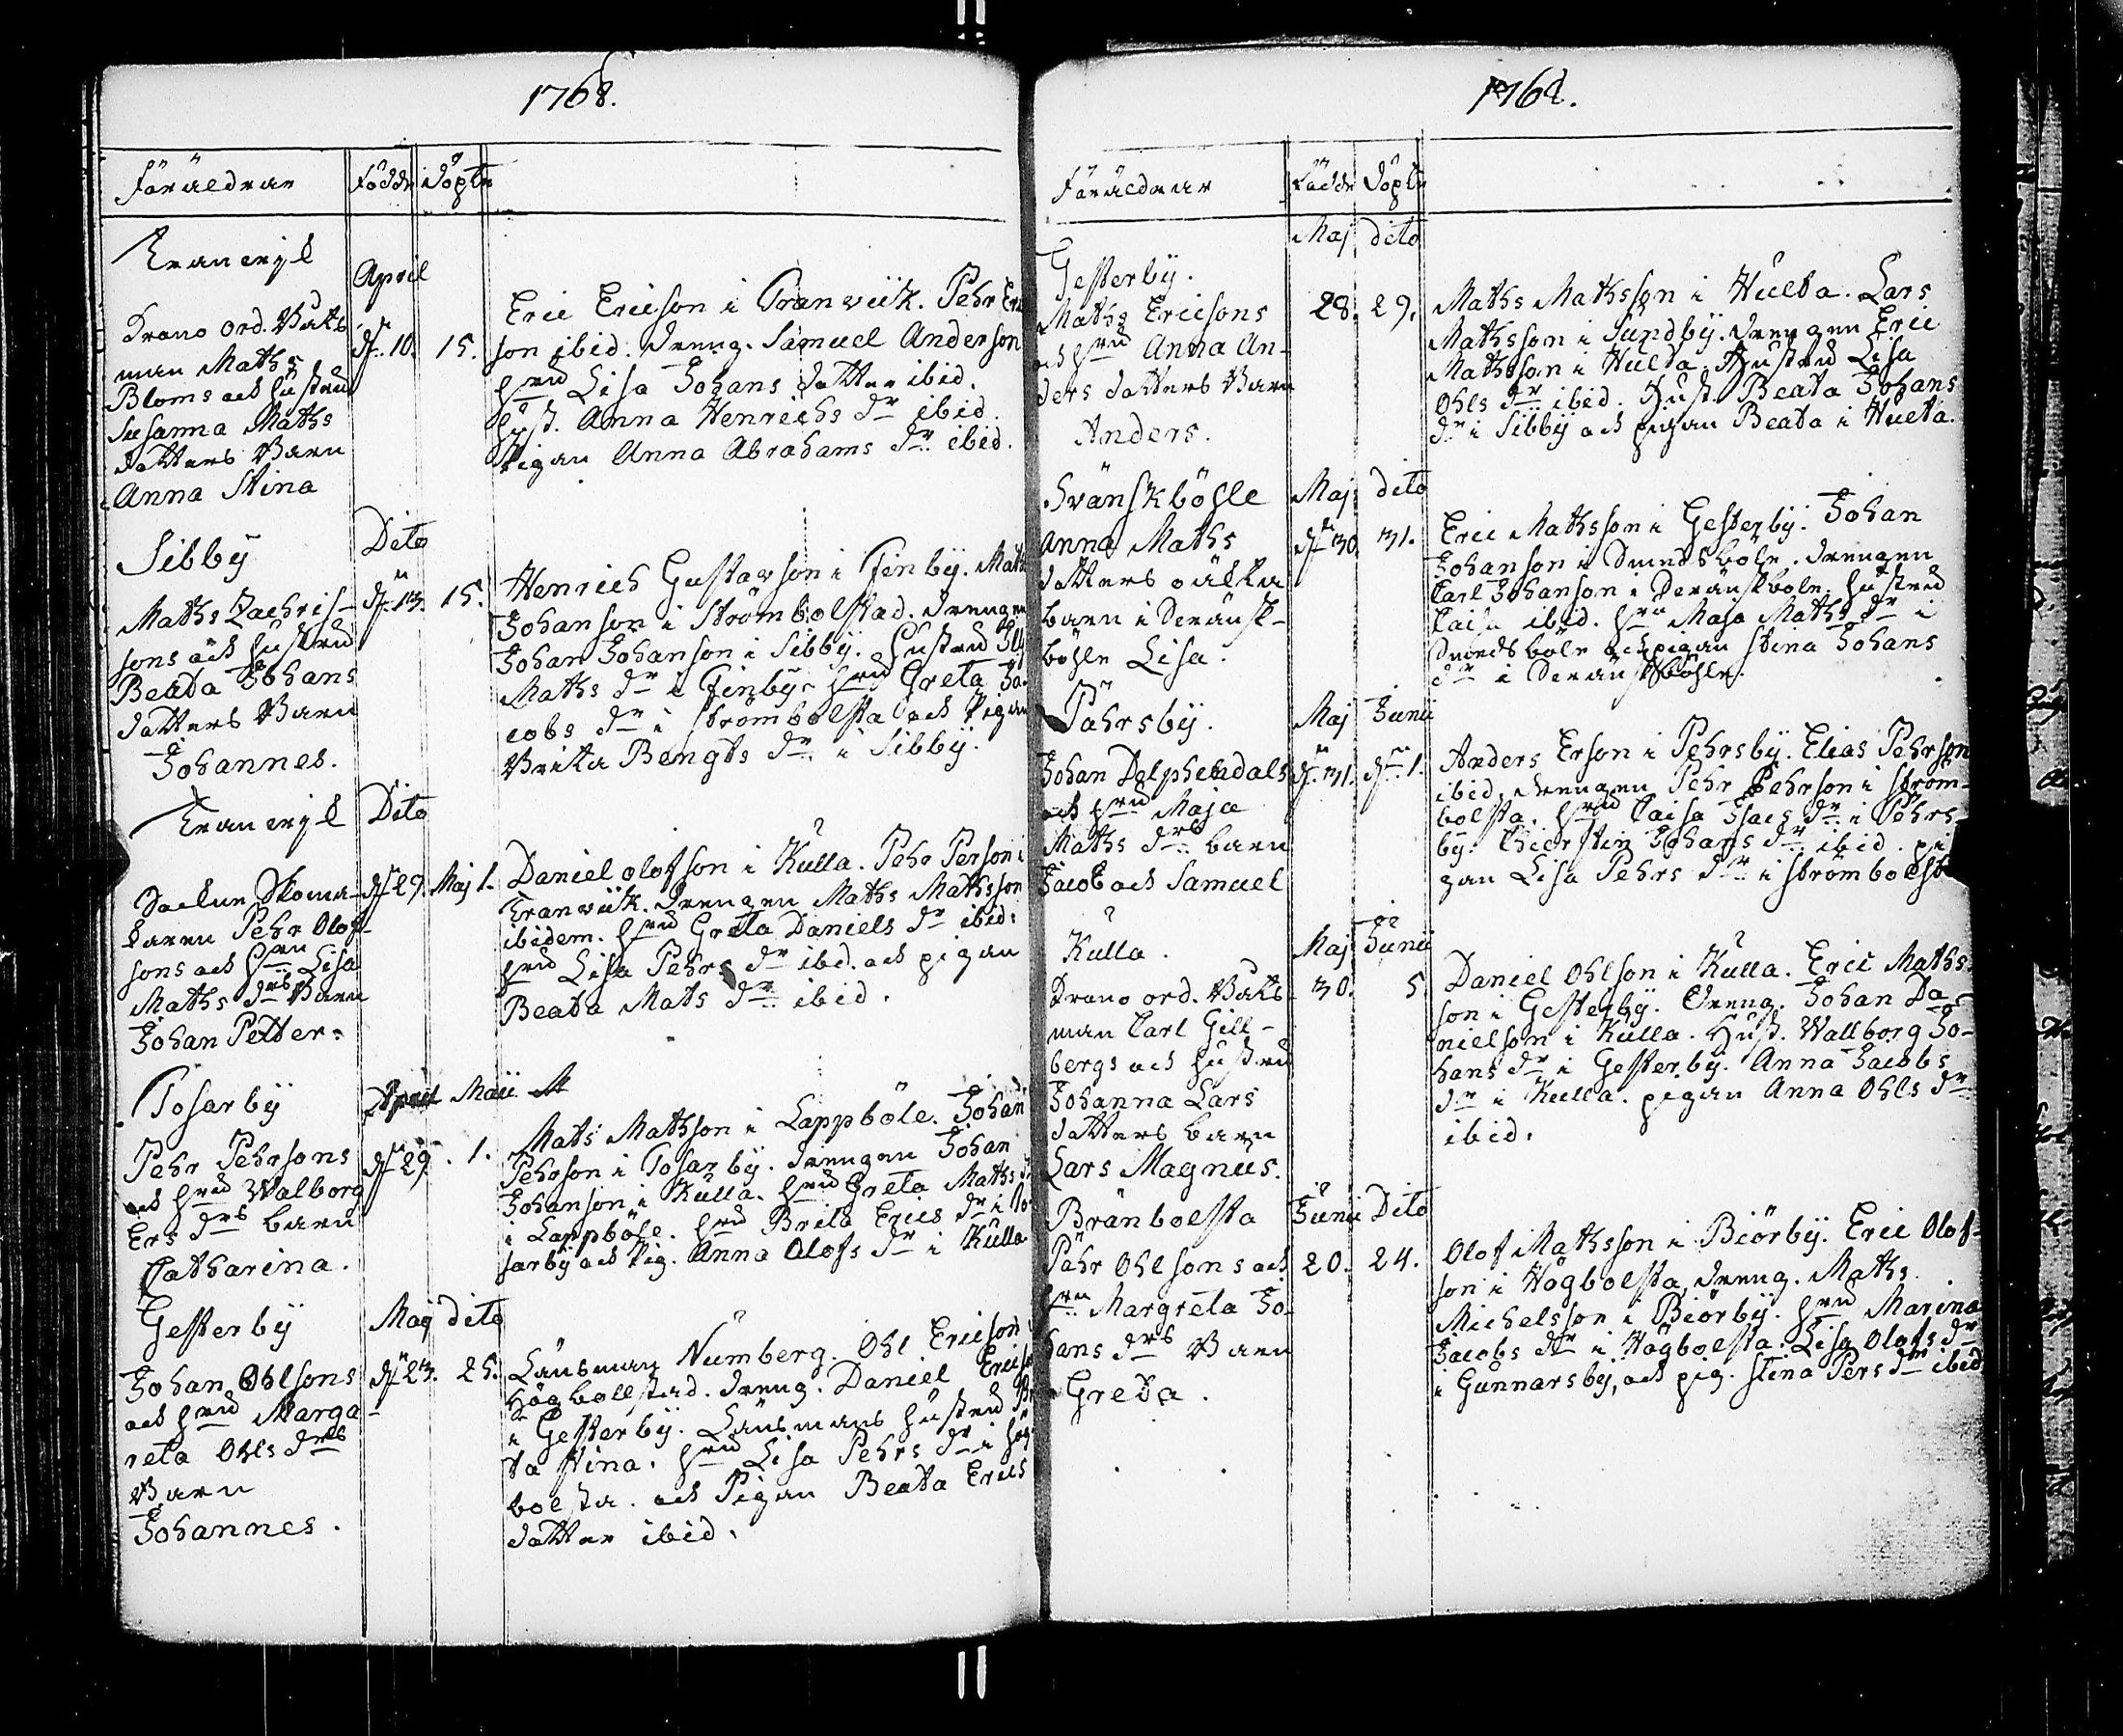 1768.
Föräldrar Födde Döpte
Tranvijk
April
Krono ord. Båts
man Maths
Bloms och hustru
Susanna Maths
dotters Barn
Anna Stina
dn 10. 15.
Eric Ericson i Tranwiik. Pehr Eric
son ibid. dreng. Samuel Anderson
hru Lisa Johans dotter ibid.
hust. Anna Henrichs dr ibid.
Pigan Anna Abrahams dr ibid.
Sibby
Dito
Maths Zachris-
sons och hustru
Beata Johans
dotters Barn
Johannes.
dn 13. 15.
Henrich Gustavson i Finby. Math
Johanson i Strömbolstad. drengen
Johan Johanson i Sibby. hustru
Maths dr i Finby. hru Greta Ja-
cobs dr i Strombolsta och Pigan
Brita Bengts dr i Sibby.
Tranvijk Dito
Sockne Skoma-
karen Pehr Olof-
sons och hru Lisa
Maths drs Barn
Johan Petter.
dn 29. Maj 1.
Daniel Olofson i Kulla. Pehr Person i
Tranviik. drengen Maths Mathsson
ibidem. hru Greta Daniels dr ibid.
hru Lisa Pehrs dr ibid. och pigan
Beata Mats dr ibid.
Tosarby
April Maii
Pehr Pehrsons
och hru Walborg
Ers drs barn
Catharina.
dn 29. 1.
Mats Mathson i Lappböle. Johan
Pehrson i Tosarby. drengen Johan
Johanson i Kulla. hru Greta Maths d
i Lappböle. hru Brita Erics dr i To-
sarby och Pig. Anna Olofs dr i Kulla
Gesterby
Maij dito
Johan Ohlsons
och hru Marga-
reta Ohls drs
Barn
Johannes.
dn 23. 25.
Länsman Numberg. Ohl Ericson i
Högbollstad. dreng. Daniel Ericso
i Gesterby. Länsmans hustru Br
ta Stina. hru Lisa Pehrs dr i hög-
bolsta. och Pigan Beata Erics
dotter ibid.
1768.
Föräldrar Födde Döpte
Maj dito
Gesterby.
Maths Ericsons
och hru Anna An-
ders dotters Barn
Anders.
28. 29.
Maths Mathsson i Hulta. Lars
Mathsson i Sundby. drengen Eric
Mathsson i Hulta. Hustru Lisa
Ohls dr ibid. Hust. Beata Johans
dr i Sibby och pigan Beata i Hulta.
Svänskböhle Maj dito
Anna Maths
dotters oäkta
barn i Svänsk-
böhle Lisa.
dn 30. 31.
Eric Mathsson i Gesterby. Johan
Johanson i Smedsböle. drengen
Carl Johanson i Svänskböle. hustru
Caisa ibid. hru Maja Maths dr i
Smedsböle och pigan Stina Johans
dr i Svänskböhle.
Pährsby. Maj Junii
Johan Delphendals
och hru Maja
Maths drs barn
Jacob och Samuel
dn 31. dn 1.
Anders Erson i Pehrsby. Elias Pehrson
ibid. drengen Pehr Pehrson i Ström-
bolsta. hru Caisa Isacs dr i Pehrs-
by. Chierstin Johans dr ibid. pi-
gan Lisa Pehrs dr i Strömbolst
Kulla. Maj Junii
Krono ord. Båts-
man Carl Gill-
bergs och hustru
Johanna Lars
dotters barn
Lars Magnus.
30. 5.
Daniel Ohlson i Kulla. Eric Maths-
son i Gesterby. Dreng. Johan Da-
nielson i Kulla. Hust. Wallborg Jo-
hans dr i Gesterby. Anna Jacobs
dr i Kulla. pigan Anna Ohls dr
ibid.
Bränbolsta Junii Dito
Pähr Ohlsons och
hru Margreta Jo-
hans drs Barn
Greta.
20. 24.
Olof Mathsson i Biörby. Eric Olof-
son i Högbolsta, dreng. Maths
Michelsson i Biörby. hru Marina
Jacobs dr i Högbolsta. Lisa Olofs dr
i Gunnarsby, och pig. Stina Pers dr ibid